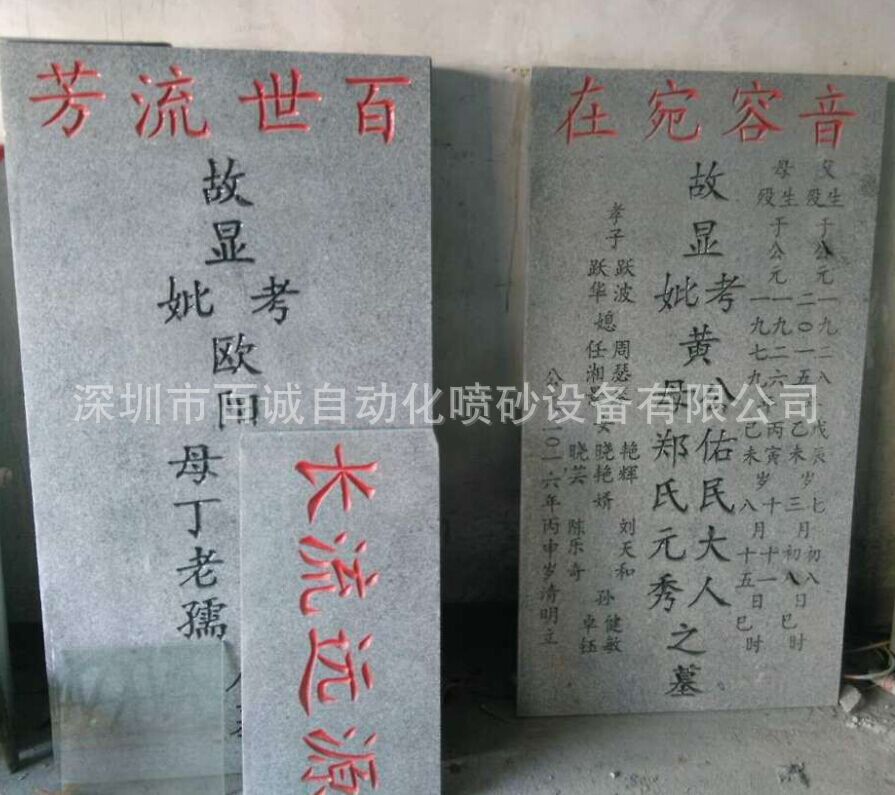 百世流芳
故显
考妣
欧阳
母丁老孺
源远流长
音容宛在
父生于公元一九二八戊辰岁七月初八日巳时
殁二〇一五乙未三月初八日
母生于公元一九二六丙寅岁十月十一日时
殁一九七九己未八月十五巳
故显
考妣
黄
公佑民大人
母郑氏元秀
之墓
孝子跃波媳周瑟
艳辉刘天和孙健敏
跃华任湘女晓艳婿卓钰
晓芸陈乐奇
公二〇一六年丙申岁清明立
深圳市百诚自动化喷砂设备有限公司